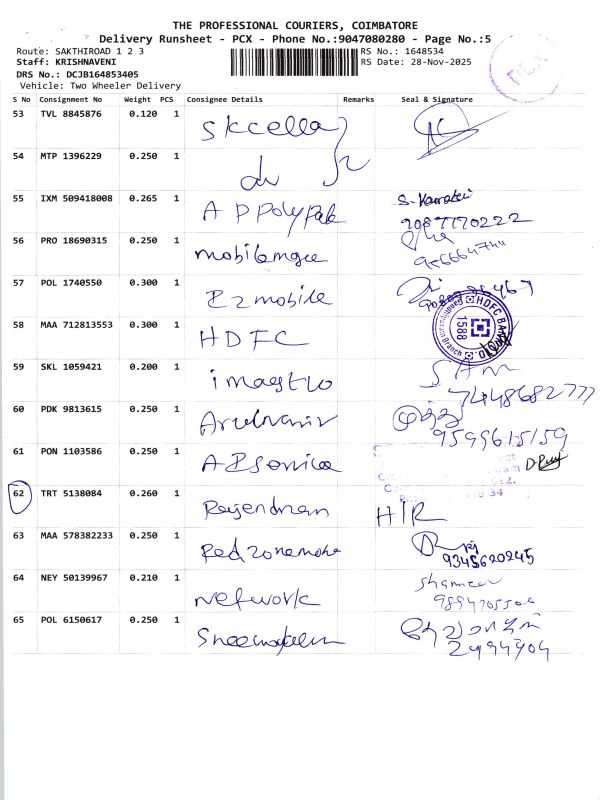 THE PROFESSIONAL COURIERS, COIMBATORE
Delivery Runsheet - PCX - Phone No.:9047080280 - Page No.:5
Route: SAKTHIROAD 1 2 3
RS No.: 1648534
Staff: KRISHNAVENI
RS Date: 28-Nov-2025
DRS No.: DCJB164853405
Vehicle: Two Wheeler Delivery
PCX
S No Consignment No Weight PCS Consignee Details Remarks Seal & Signature
53 TVL 8845876 0.120 1 Skcella
54 MTP 1396229 0.250 1 du
55 IXM 509418008 0.265 1 A P Polypak
9087770222
56 PRO 18690315 0.250 1
57 POL 1740550 0.300 1 Ezmobile
58 MAA 712813553 0.300 1 HDFC HDFC BANK LTD 1588 Branch
59 SKL 1059421 0.200 1 imaestro
7448682777
60 PDK 9813615 0.250 1
9599615159
61 PON 1103586 0.250 1
62 TRT 5138084 0.260 1 Rajendran H/R
63 MAA 578382233 0.250 1 Redzonemoke
9345620245
64 NEY 50139967 0.210 1 network
65 POL 6150617 0.250 1